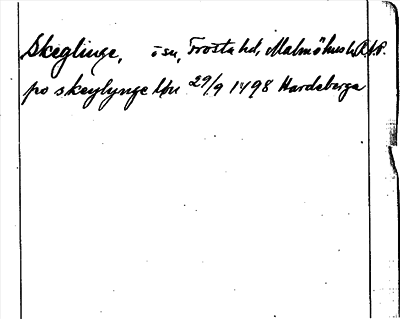 Skeglinge, ö sn, Frosta hd, Malmöhus l,
po skeylynge 29/9 1498 Hardeberga